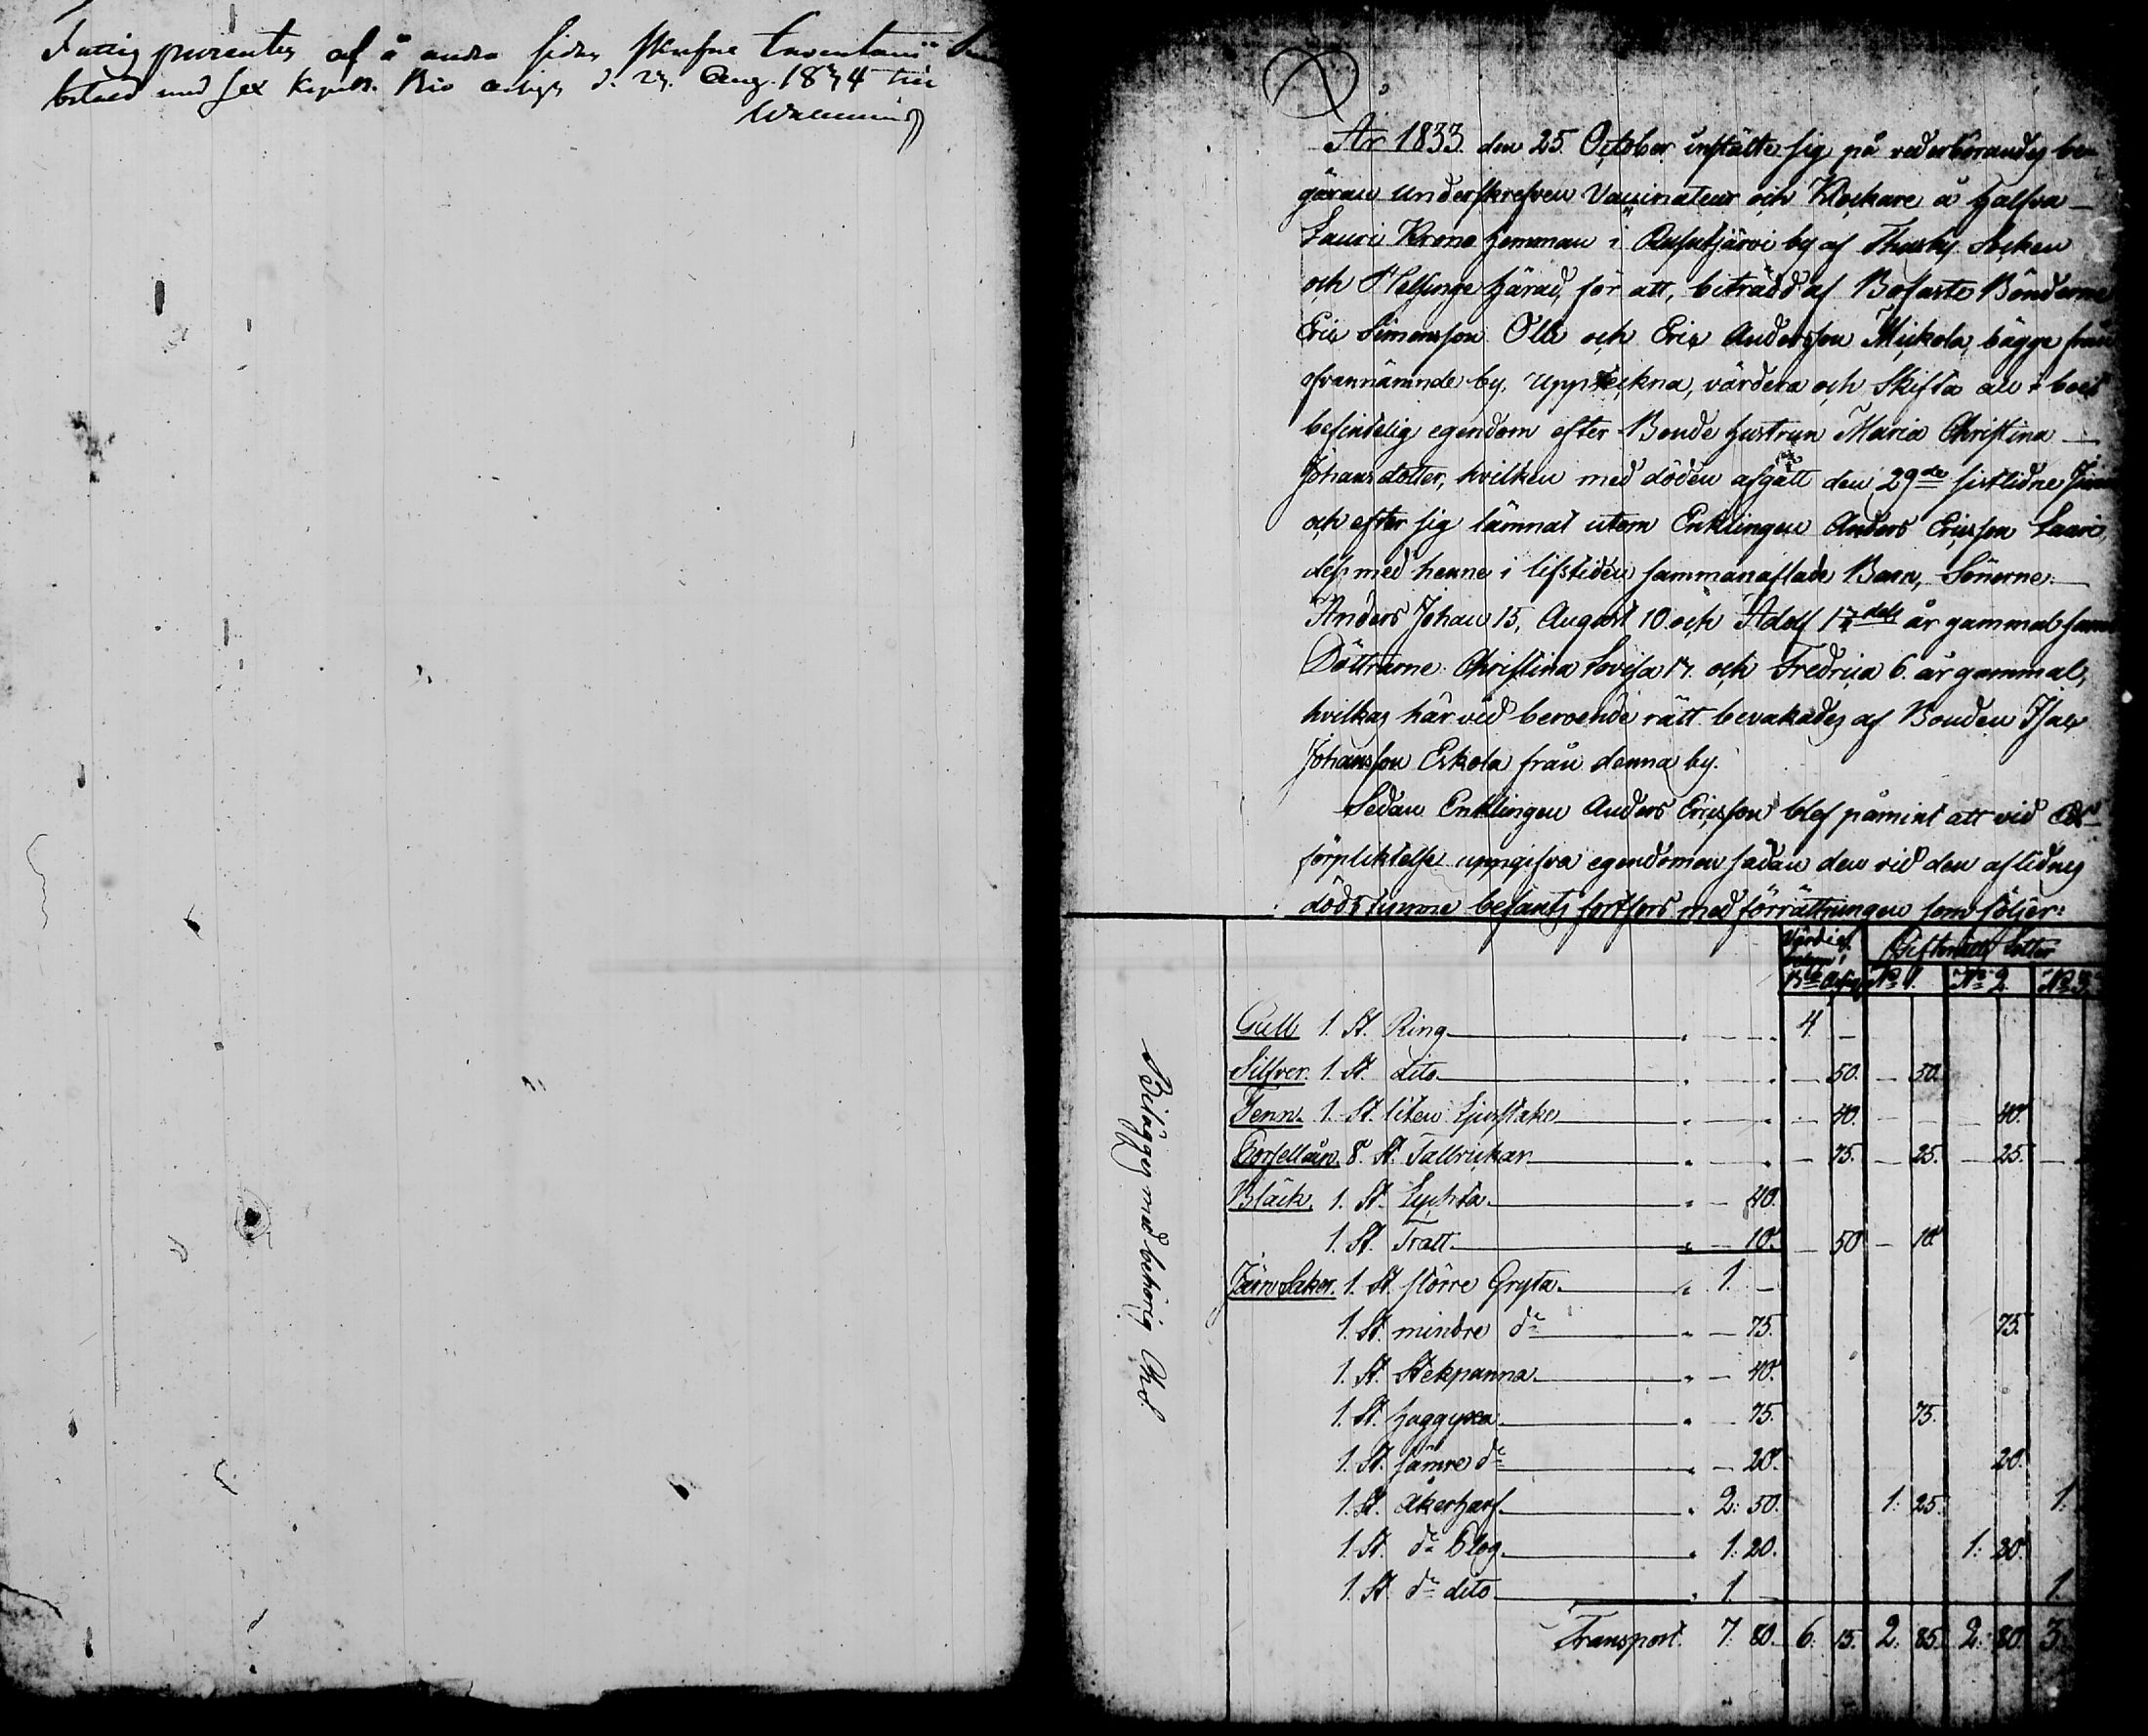 Fattig procenten af å andra sidan skrefne Inventarii
betald med sex kopek. Rio assign. d. 27. Aug. 1834
År 1833 den 25. October instälte sig på vederbörandes be-
gäran underskrefven Vaccinateur och Klockare å Halfva
Lauri Krono hemman i Rusutjärvi by af Thusby Socken
och Helsinge härad, för att, biträdd af Bofaste Bönderne
Eric Simonsson Olli och Eric Andersson Mickola, bägge från
ofvannämnde by, uppteckna, värdera och Skifta all i boet
befintelig egendom efter Bonde hustrun Maria Christina
Johansdotter, hvilken med döden afgått den 29de sistlidne
och efter sig lämnat utom Enklingen Anders Ericsson Lauri,
dess med henne i lifstiden sammanaflade Barn, Sönerne
Anders Johan 15, August 10 och Adolf 1 7/4 dels år gammal samt
Döttrarne Christina Lovisa 17. och Fredrica 6. år gammal,
hvilkas härvid beroende rätt bevakades af Bonden Isac
Johansson Eskola från denna by.
Sedan Enklingen Anders Ericsson blef påmint att vid Ed-
förpliktelse uppgifva egendomen sådan den vid den aflidnes
dödstimme befants fortfors med förrättningen som följer:
Värdi ef.
Giftorätts Lotter
Rb. Assig. No 1. No 2. No 3.
Gull 1. St. Ring 4. —
Silfver. 1. St. dito — 50. — 50.
Tenn. 1. St. liten Ljusstake — 40. — 40.
Porsellain. 8. St. Tallrickar — 75. — 25. — 25.
Bläck. 1. St. Lychta — 40.
1. St. Tratt — 10. — 50 — 10.
Järn Saker. 1. St. större Gryta 1. —
1. St. mindre do — 75. 75.
1. St. Stekpanna — 40.
1. St. huggyxa — 75. 75.
1. St. sämre do — 20. 20.
1. St. åkerharf 2: 50. 1: 25. 1.
1. St. do Plog 1: 20. 1: 20.
1. St. do dito 1. — 1.
Transport. 7. 80. 6. 15. 2. 85. 2. 80. 3.
Bilägges med behörig Chs.